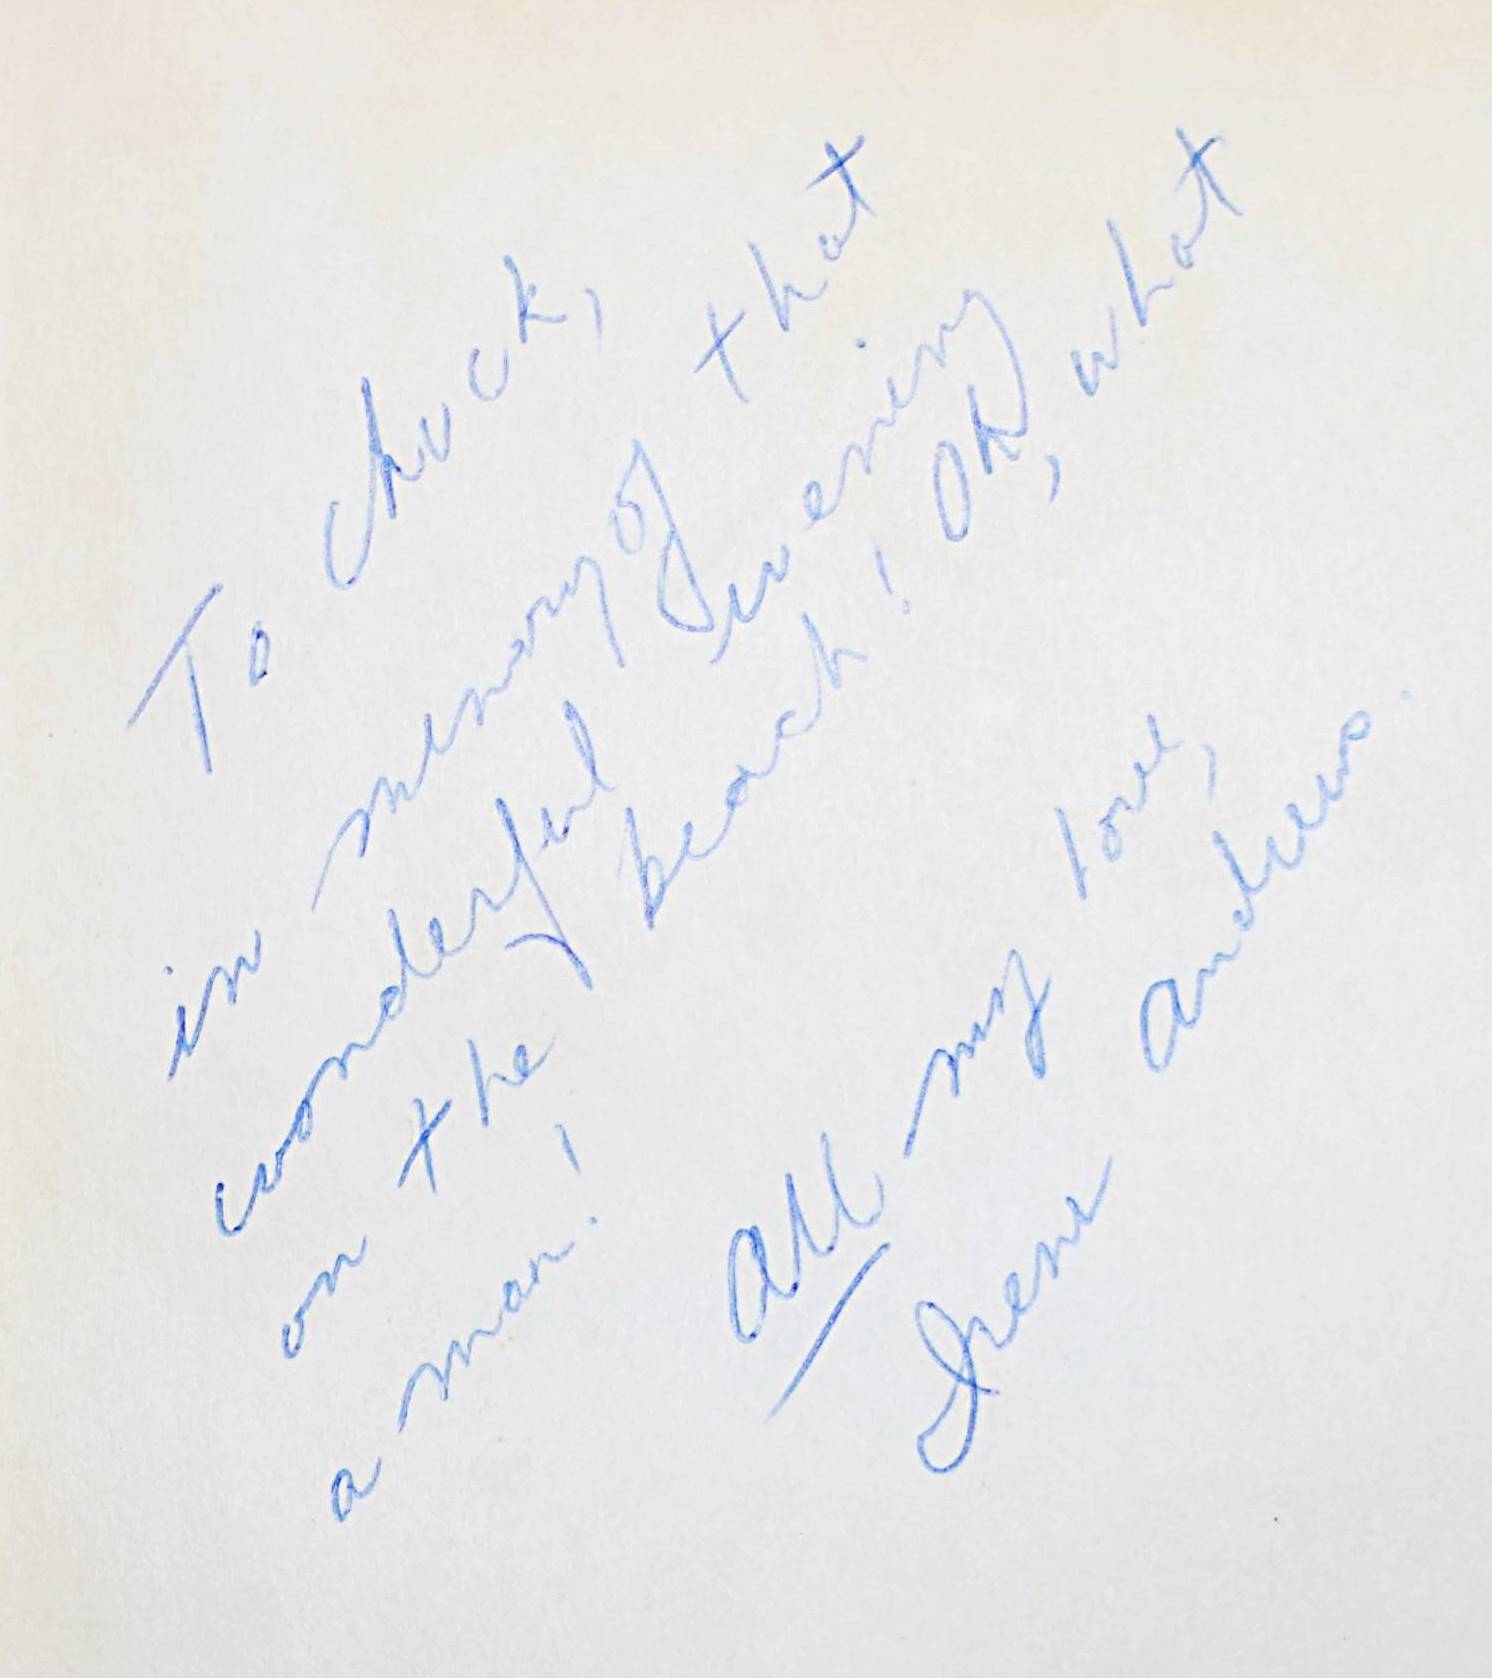 To Chuck,
in memory of that
wonderful evening
on the beach! Oh, what
a man!
All my love,
Irene Andrews.